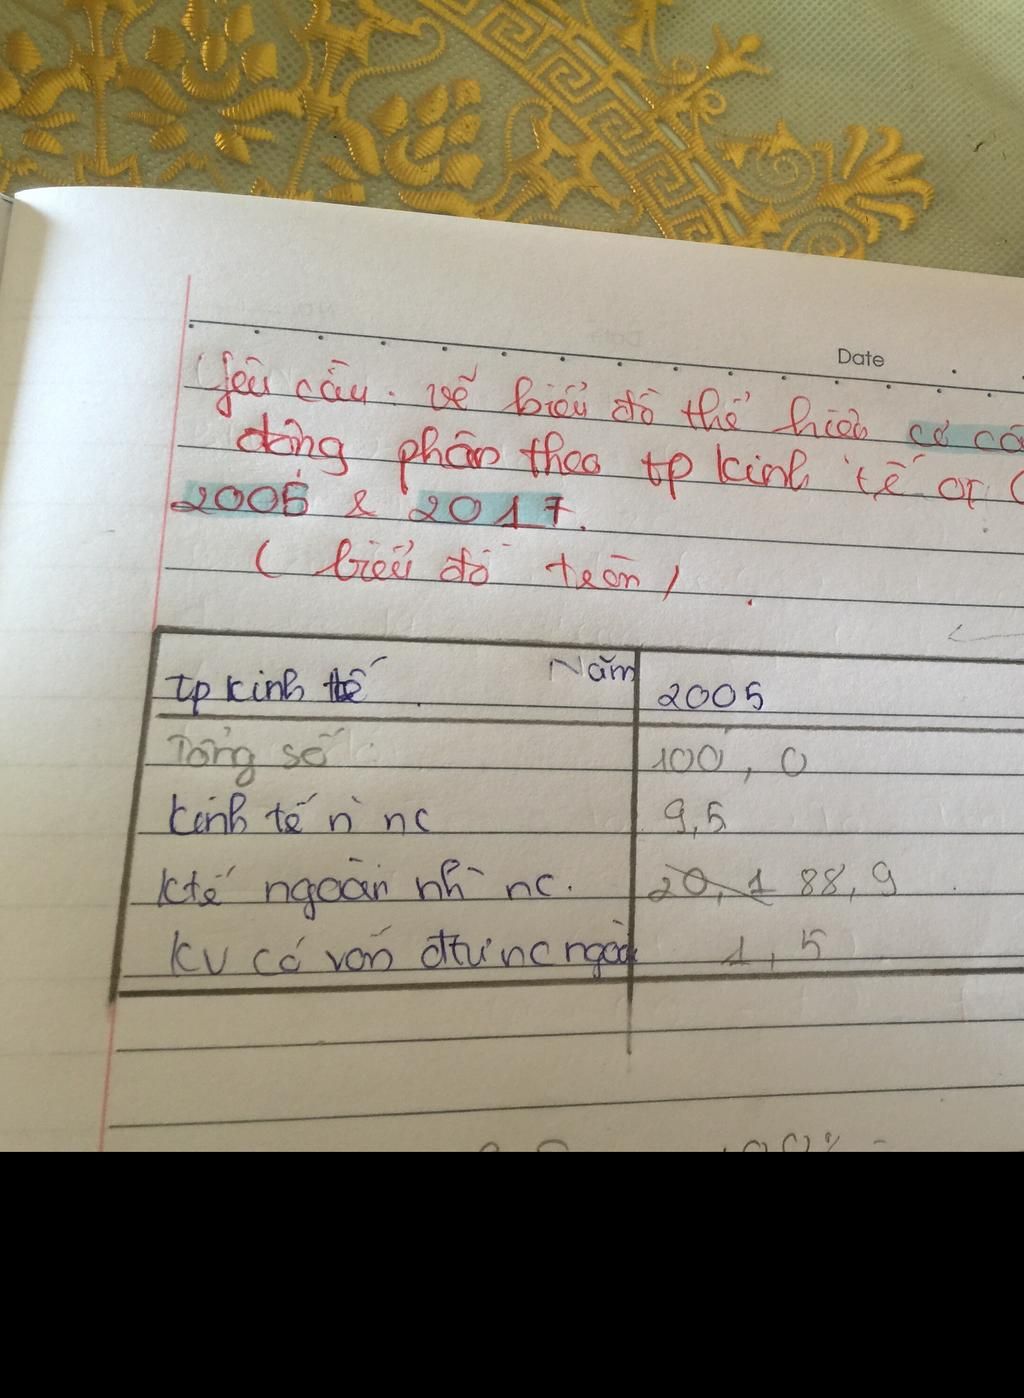 Date
Yêu cầu. vẽ biểu đồ thể hiện cơ
động phân theo tp kinh tế or
2005 & 2017.
( biểu đồ tròn )
Năm
tp kinh tế 2005
Tổng số 100, 0
kinh tế n` nc 9,5
ktế ngoài nh` nc. 20, 1 88, 9
KV có vốn đtư nc ngoài 1, 5